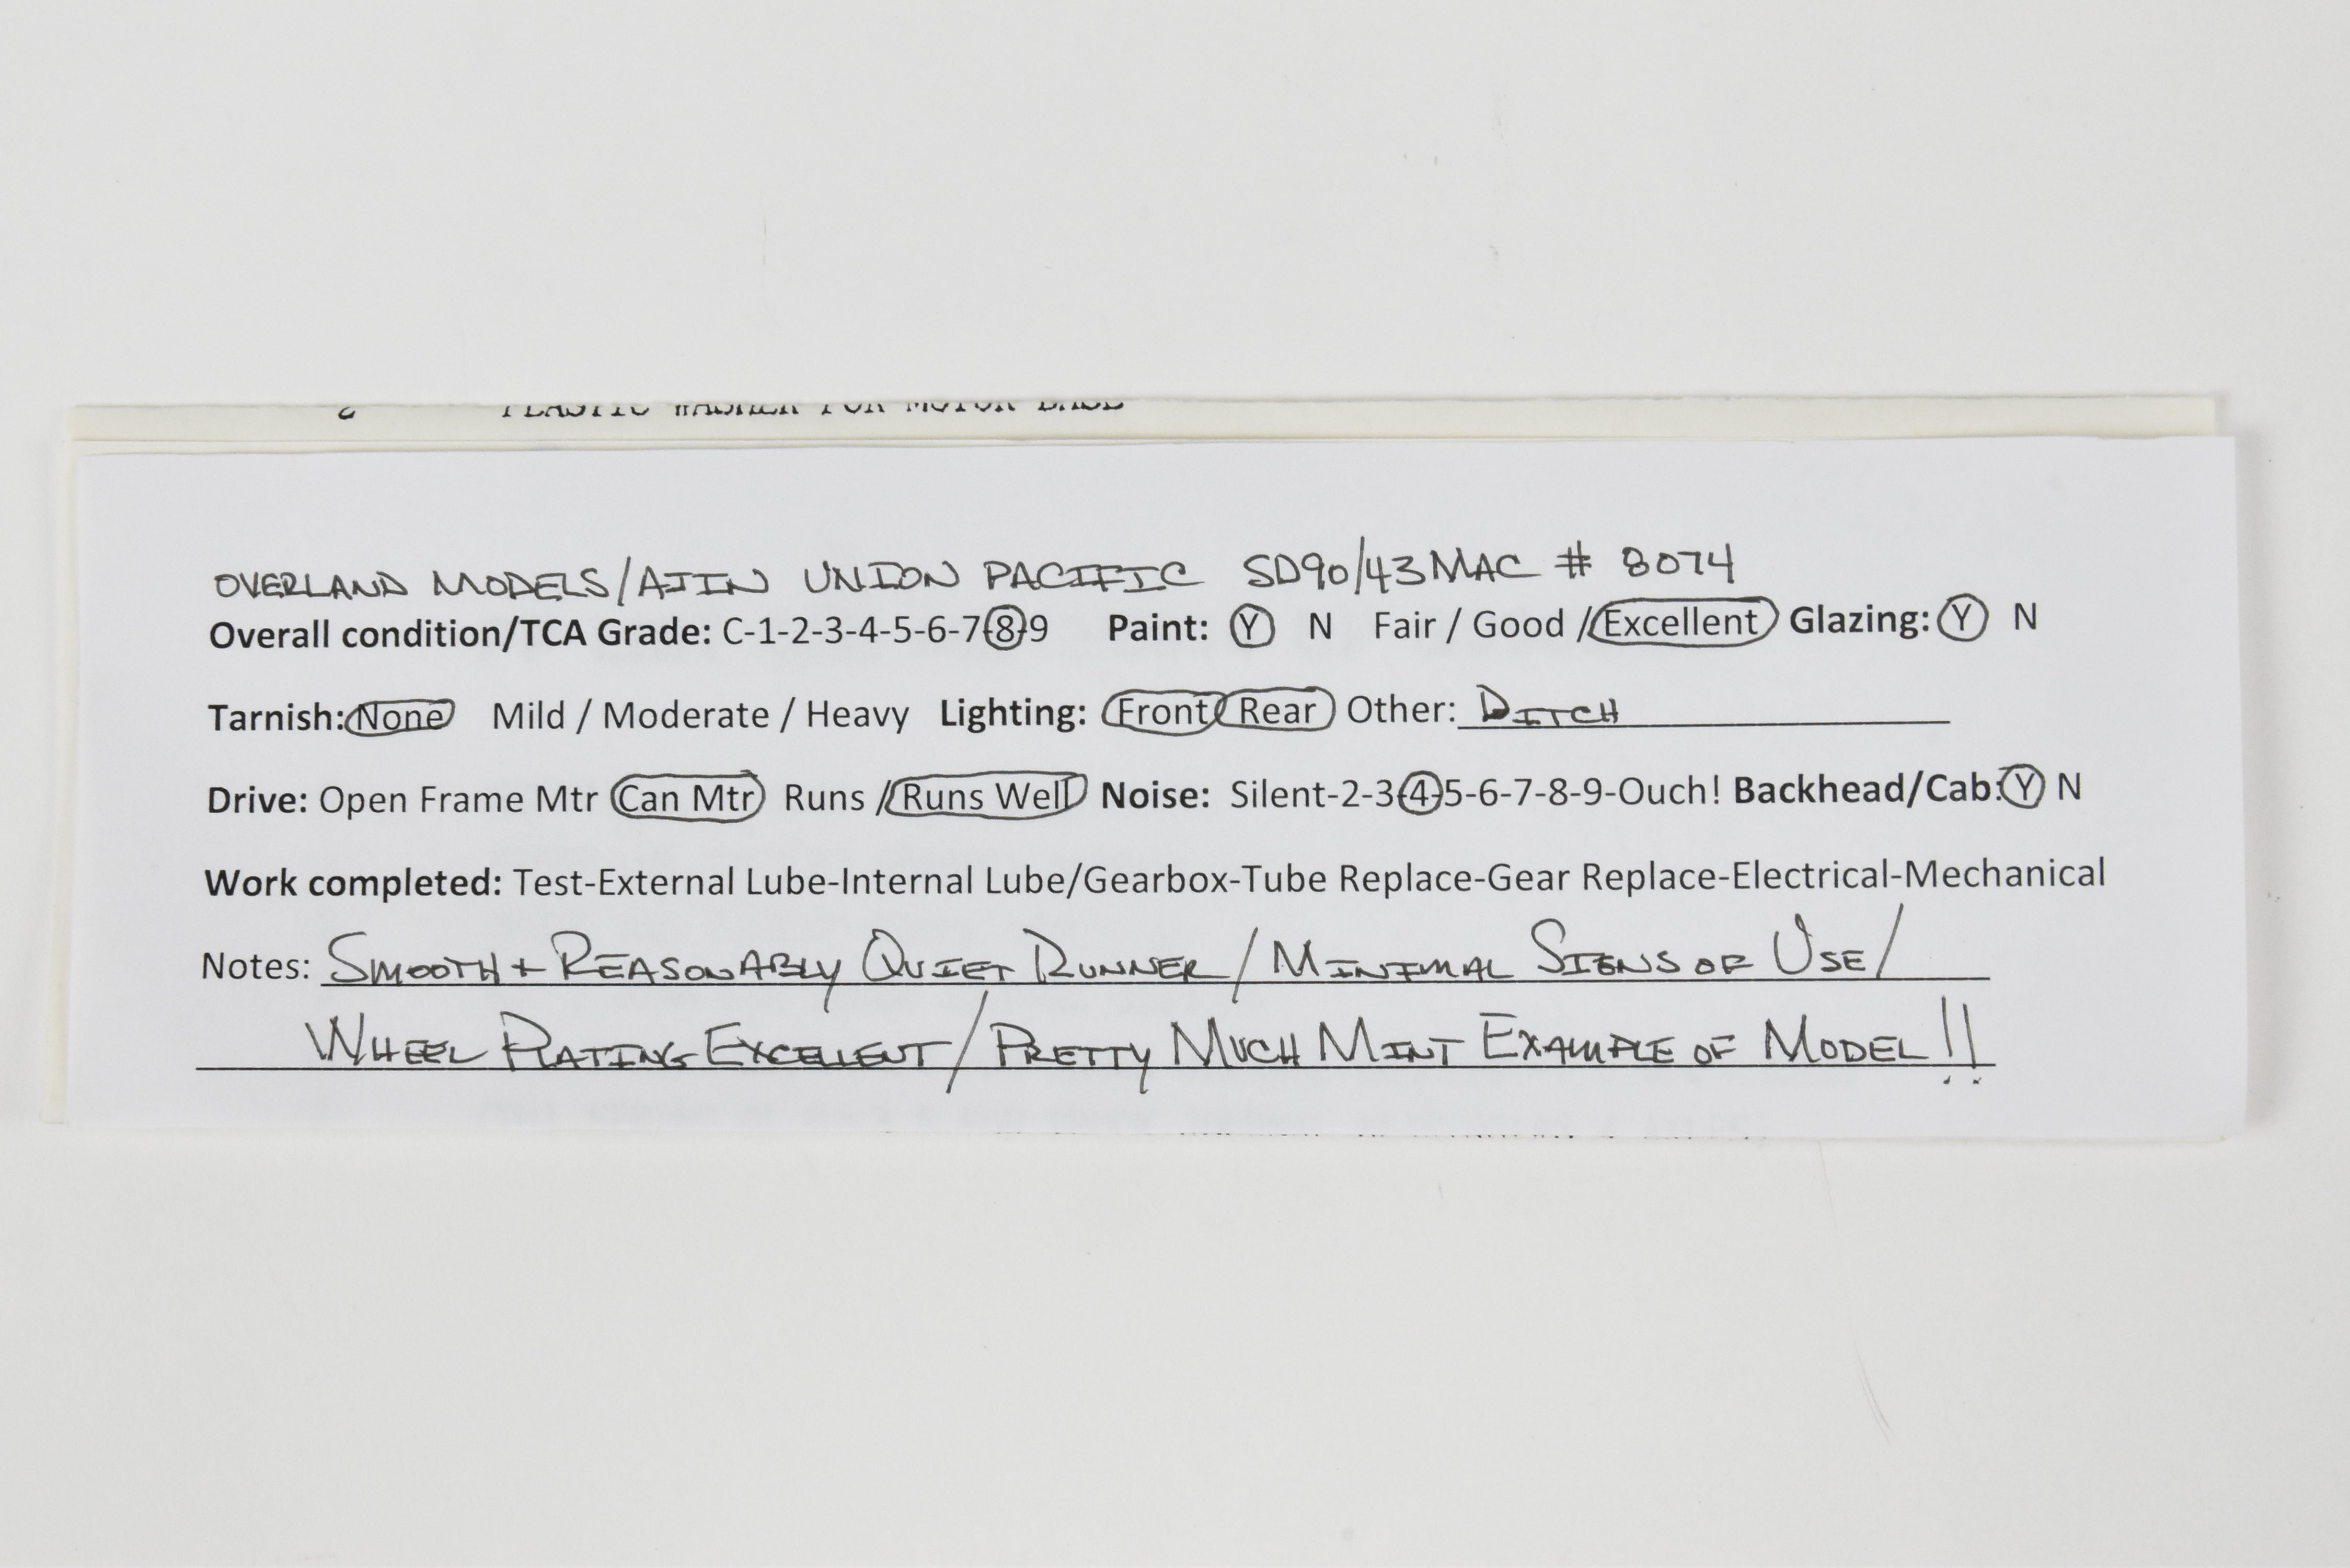 2 PLASTIC WASHER FOR MOTOR BASE
OVERLAND MODELS/AJIN UNION PACIFIC SD90/43MAC # 8074
Overall condition/TCA Grade: C-1-2-3-4-5-6-7-8-9 Paint: Y N Fair / Good / Excellent Glazing: Y N
Tarnish: None Mild / Moderate / Heavy Lighting: Front Rear Other: DITCH
Drive: Open Frame Mtr Can Mtr Runs / Runs Well Noise: Silent-2-3-4-5-6-7-8-9-Ouch! Backhead/Cab: Y N
Work completed: Test-External Lube-Internal Lube/Gearbox-Tube Replace-Gear Replace-Electrical-Mechanical
Notes: SMOOTH + REASONABLY QUIET RUNNER / MINIMAL SIGNS OF USE /
WHEEL PLATING EXCELLENT / PRETTY MUCH MINT EXAMPLE OF MODEL !!